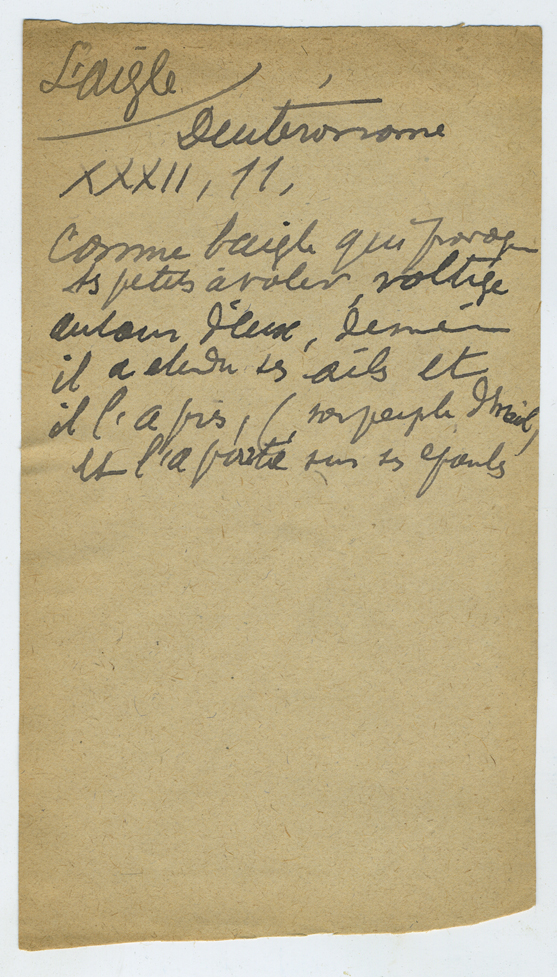 L'aigle
Deutéronome
XXXII, 11,
Comme l'aigle qui provoque
ses petits à voler, voltige
autour d'eux, de même
il a étendu ses ailes et
il l'a pris, (son peuple d'Israël)
et l'a porté sur ses épaules